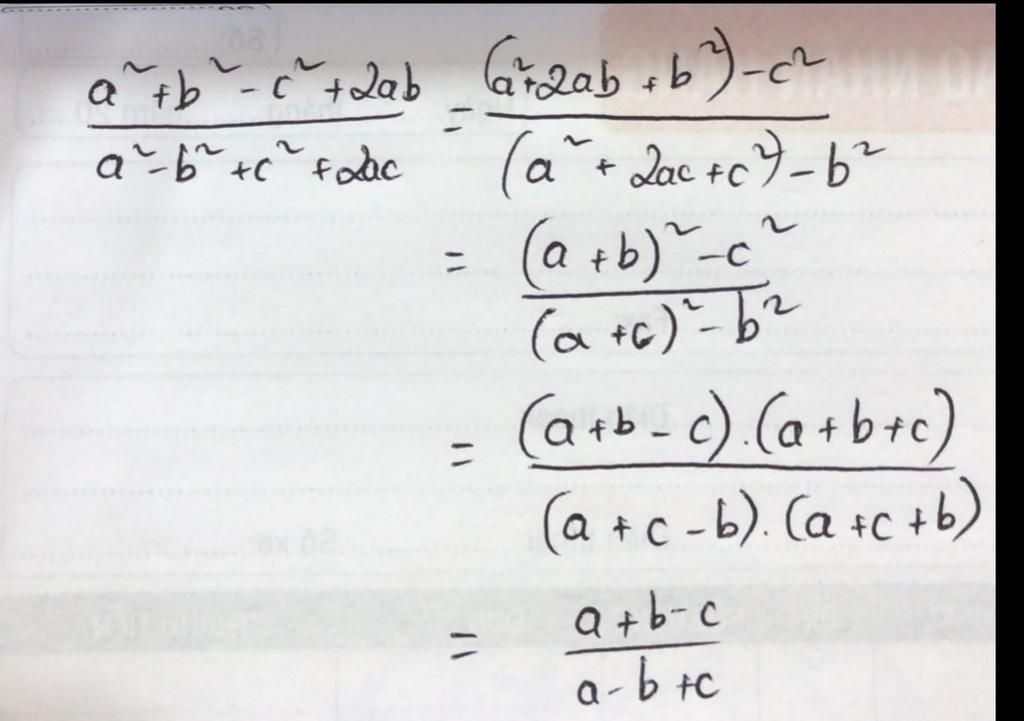 a²+b²-c²+2ab / a²-b²+c²+2ac = (a²+2ab+b²)-c² / (a²+2ac+c²)-b²
= (a+b)²-c² / (a+c)²-b²
= (a+b-c).(a+b+c) / (a+c-b).(a+c+b)
= a+b-c / a-b+c